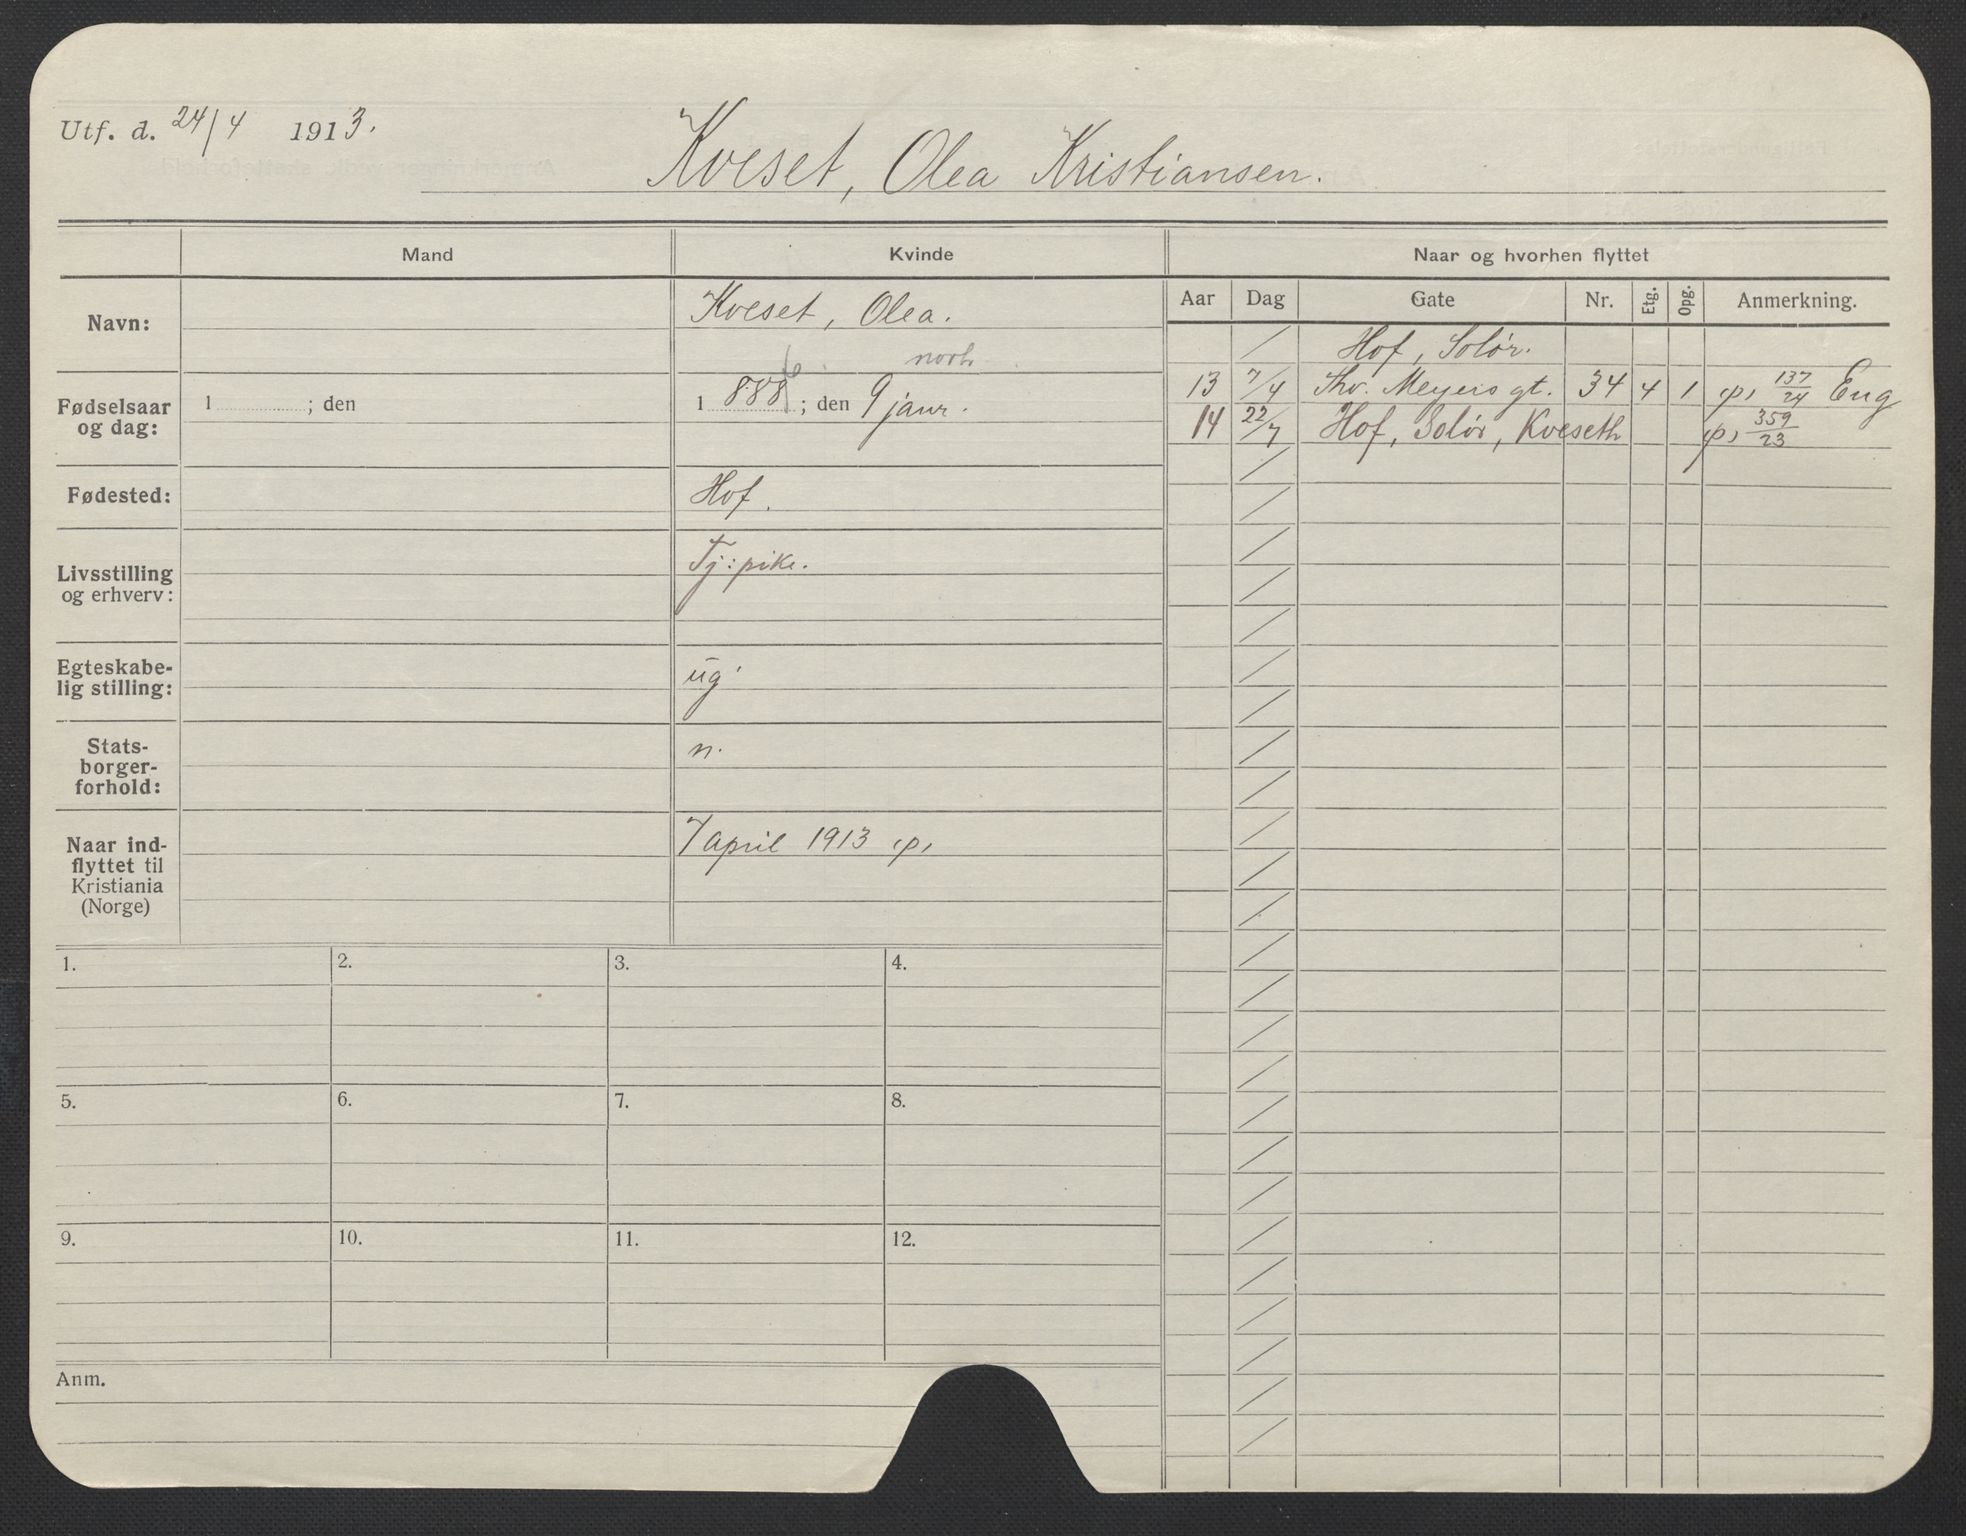 Utf. d. 24/4 1913.
Kveset, Olea Kristiansen.
Mand
Kvinde
Naar og hvorhen flyttet
Aar Dag Gate Nr. Etg. Opg. Anmerkning.
Navn:
Kveset, Olea.
Fødselsaar og dag:
1 ; den
1 888 ; den 9 janr.
6
Fødested:
Hof.
Livsstilling og erhverv:
Tj: pike.
Egteskabe-
lig stilling:
ug
Stats-
borger-
forhold:
n.
Naar ind-
flyttet til
Kristiania
(Norge)
7 april 1913 p,
Hof, Solør.
13 7/4 Thv. Meyers gt. 34 4 1 p, 137/24 Eng
14 22/7 Hof, Solør, Kveseth p, 359/23
1. 2. 3. 4.
5. 6. 7. 8.
9. 10. 11. 12.
Anm.